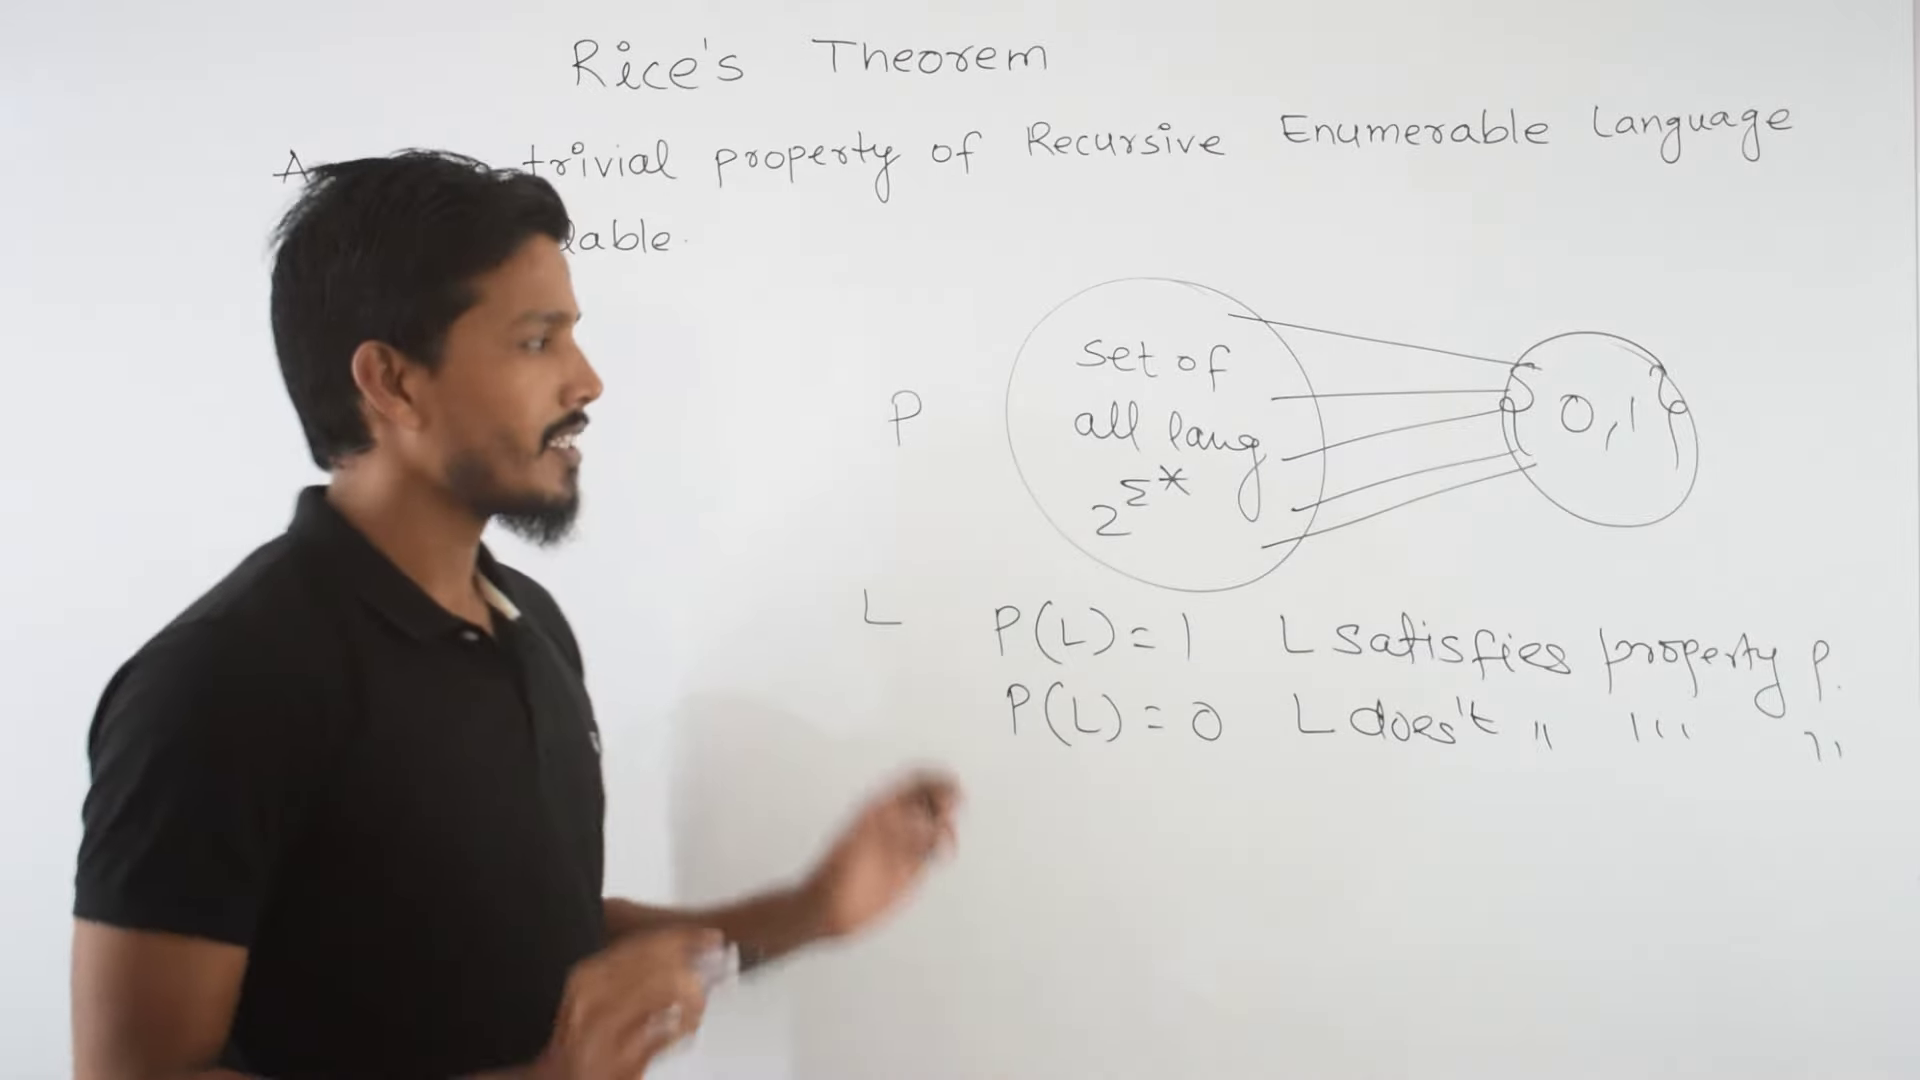 Rice's Theorem
trivial property of Recursive Enumerable Language
able.
set of
all lang
2^Σ*
{0,1}
P
L P(L)=1 L satisfies property P.
P(L)=0 L does't " " "